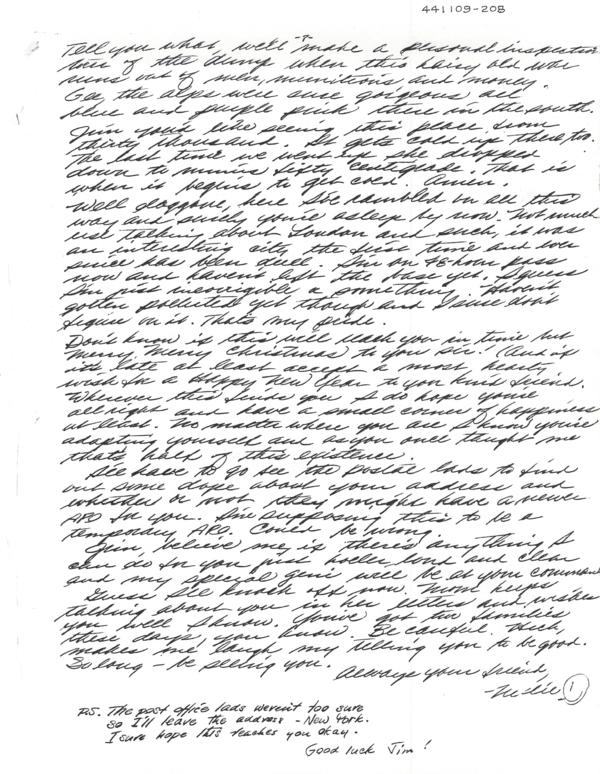 441109-20B
-7-
Tell you what, we'll make a personal inspection
tour of the dump when this hairy old war
runs out of men, munitions and money.
Gee the alps were once gorgeous all
blue and purple pink there in the south.
Jim you'd like seeing this place from
thirty thousand. It gets cold up there, too.
The last time we went up she dropped
down to minus sixty centigrade. That is
when it begins to get cold. Amen.
Well doggone, here I've rambled on all this
way and surely you're asleep by now. Not much
use talking about London and such, it was
an interesting city the first time and ever
since has been dull. I'm on 48-hour pass
now and haven't left the base yet. I guess
I'm just incorrigible or something. Haven't
gotten polluted yet though and I sure don't
figure on it. That's my pride.
Don't know if this will reach you in time but
Merry, Merry Christmas to you sir! (And if
it's late at least accept a most hearty
wish for a Happy New Year to you kind friend.
Wherever this finds you I do hope you're
all right and have a small corner of happiness
at least. No matter where you are I know you're
adapting yourself and as you once taught me
that's half of this existence.
I'll have to go see the postal lads to find
out some dope about your address and
whether or not they might have a newer
APO for you. I'm supposing this to be a
temporary APO. Could be wrong.
Jim, believe me, if there's anything I
can do for you just holler loud and clear
and my special geni will be at your command.
Guess I'll knock off now. Mom keeps
talking about you in her letters and wishes
you well I know. You've got two families
these days, you know. Be careful. Heck,
makes me laugh my telling you to be good.
So long - be seeing you.
Always your friend,
1
P.S. The post office lads weren't too sure
so I'll leave the address - New York.
I sure hope this reaches you okay.
Good luck Jim!